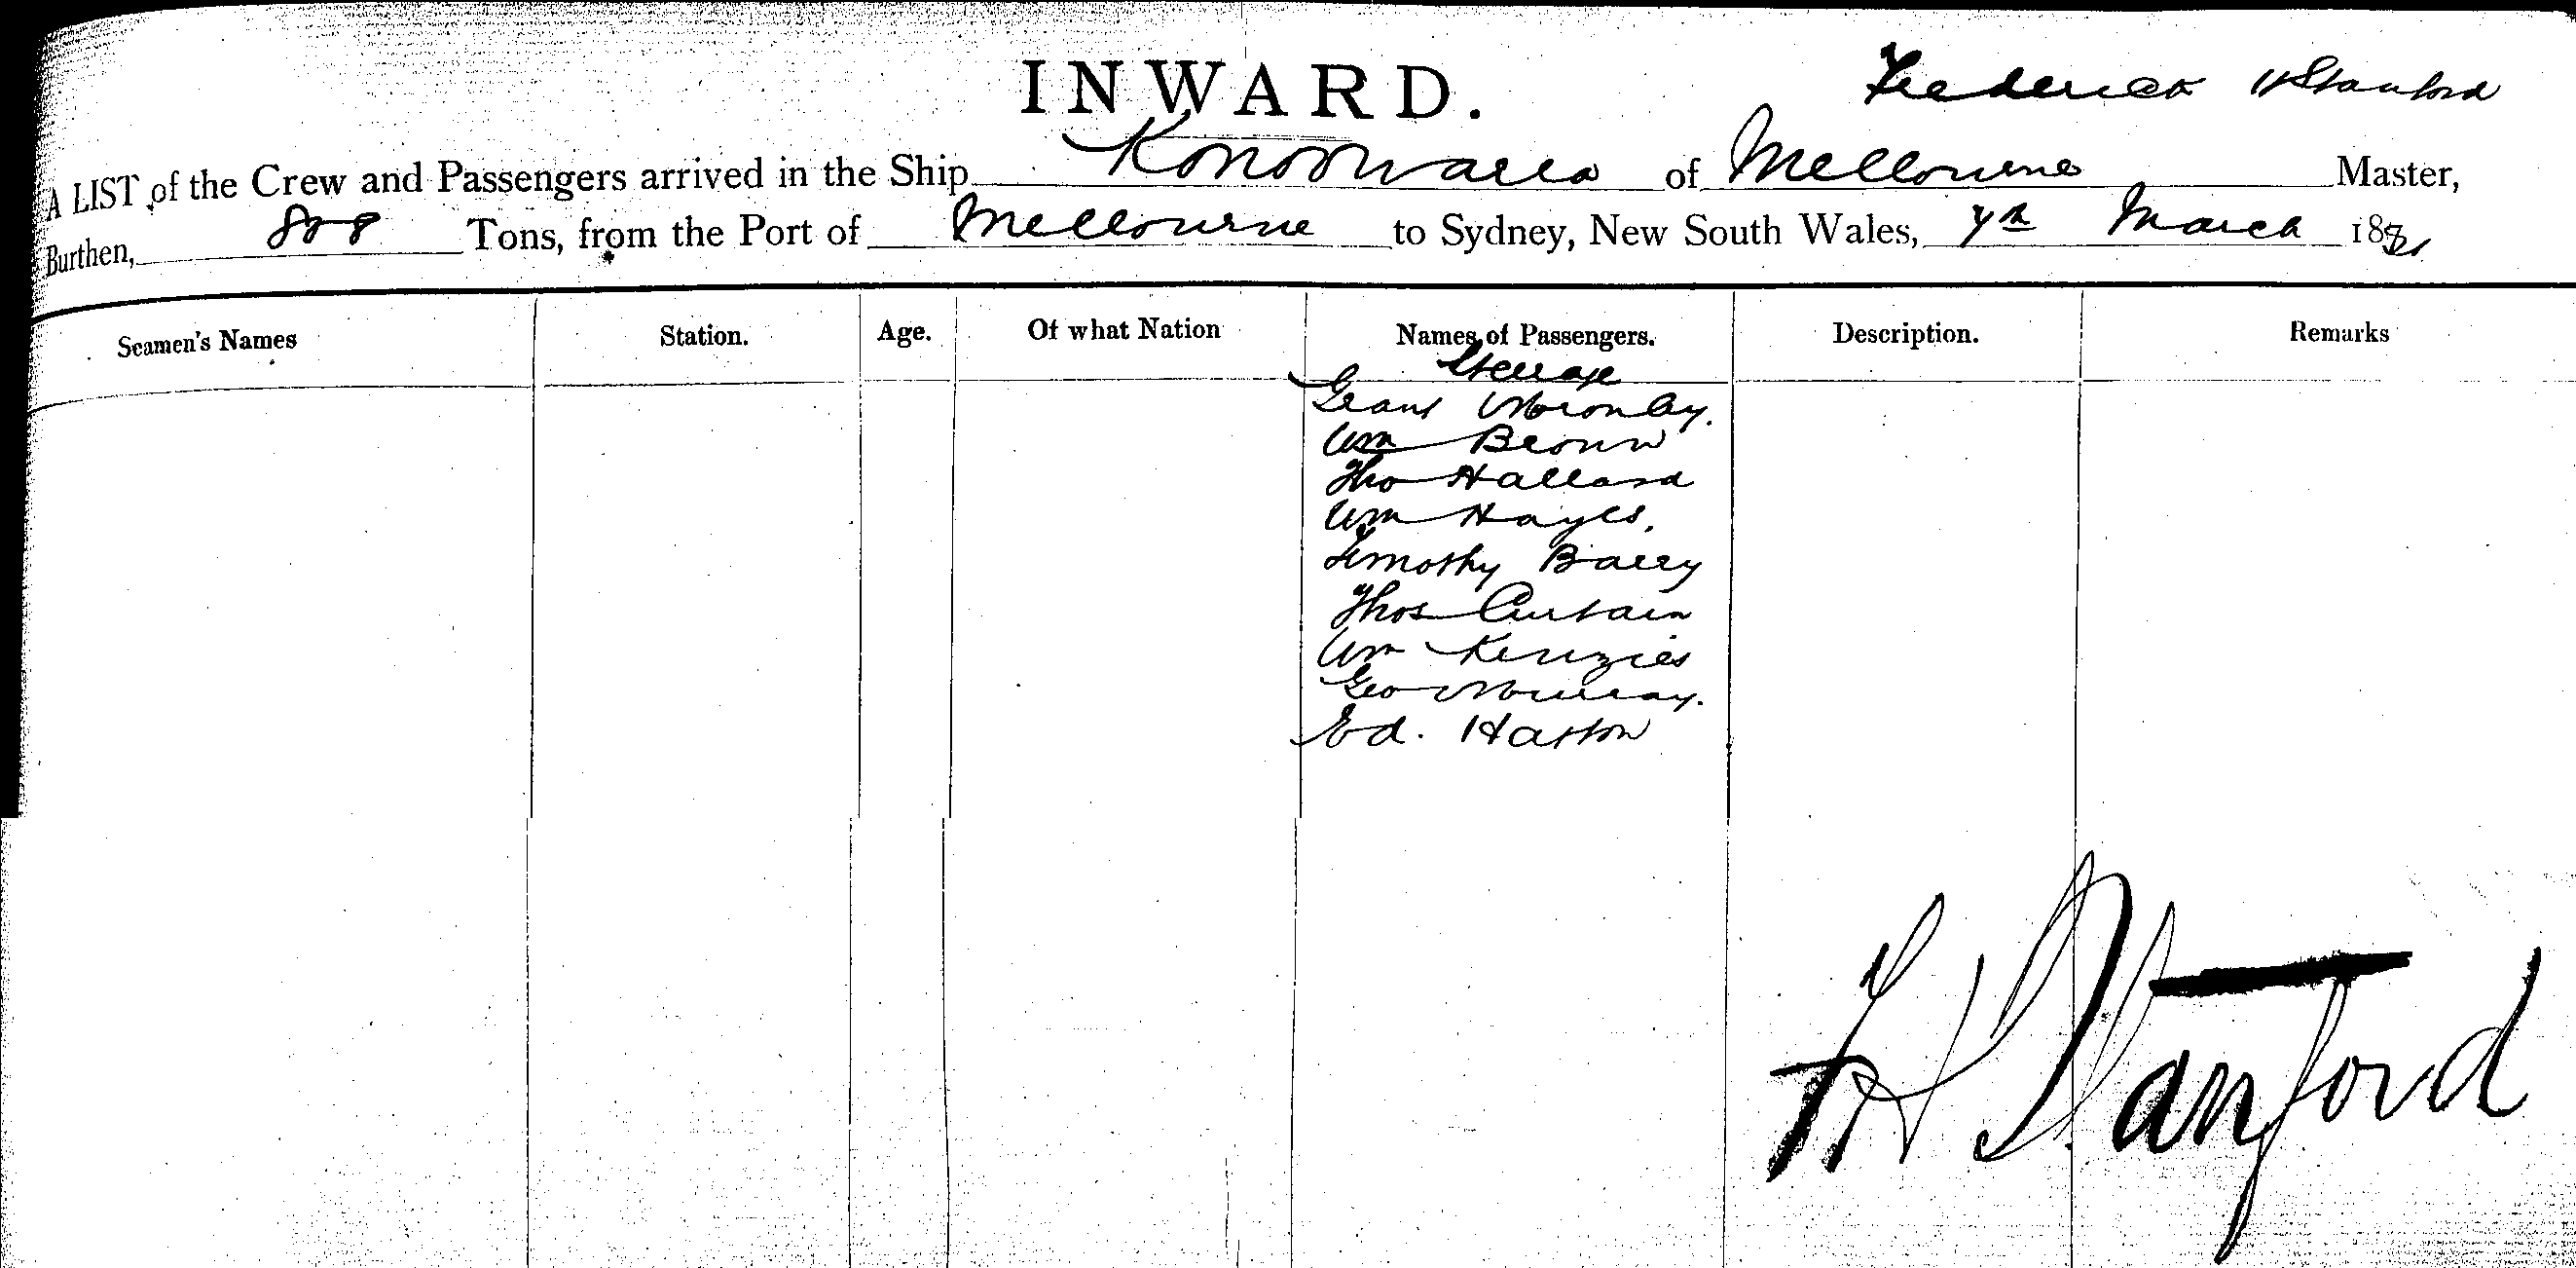 INWARD.
Frederick H Stanford
A LIST of the Crew and Passengers arrived in the Ship Konoowarra of Melbourne Master,
Burthen, 808 Tons, from the Port of Melbourne to Sydney, New South Wales, 7th March 18
Seamen's Names Station. Age. Of what Nation Names of Passengers. Description. Remarks
Steerage
Grant
Wm Brown
Tho Hallard
Wm Hayes.
Timothy Barry
Thos Curtain
Wm Kenzies
Geo Murray.
Ed. Harton
F H Stanford